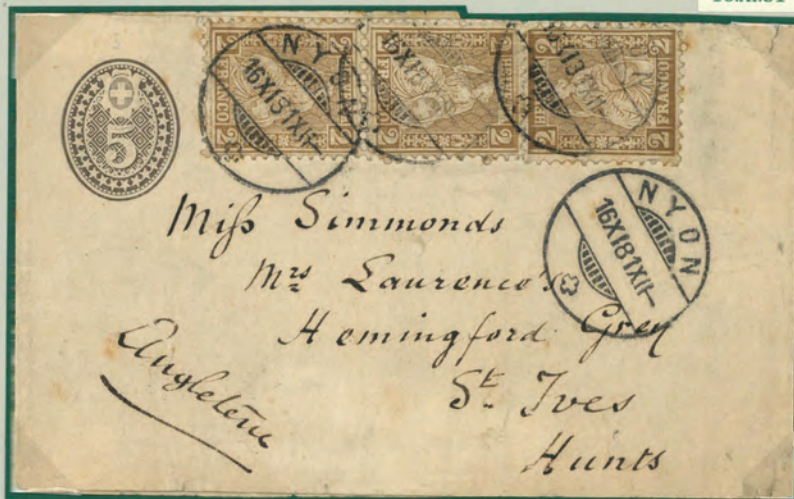 5
FRANCO 2
2 FRANCO
NYON
16 XI 81 XII-
NYON
16 XI 81 XII-
Miss Simmonds
Mrs Laurence's
Hemingford Grey
St. Ives
Hunts
Angleterre